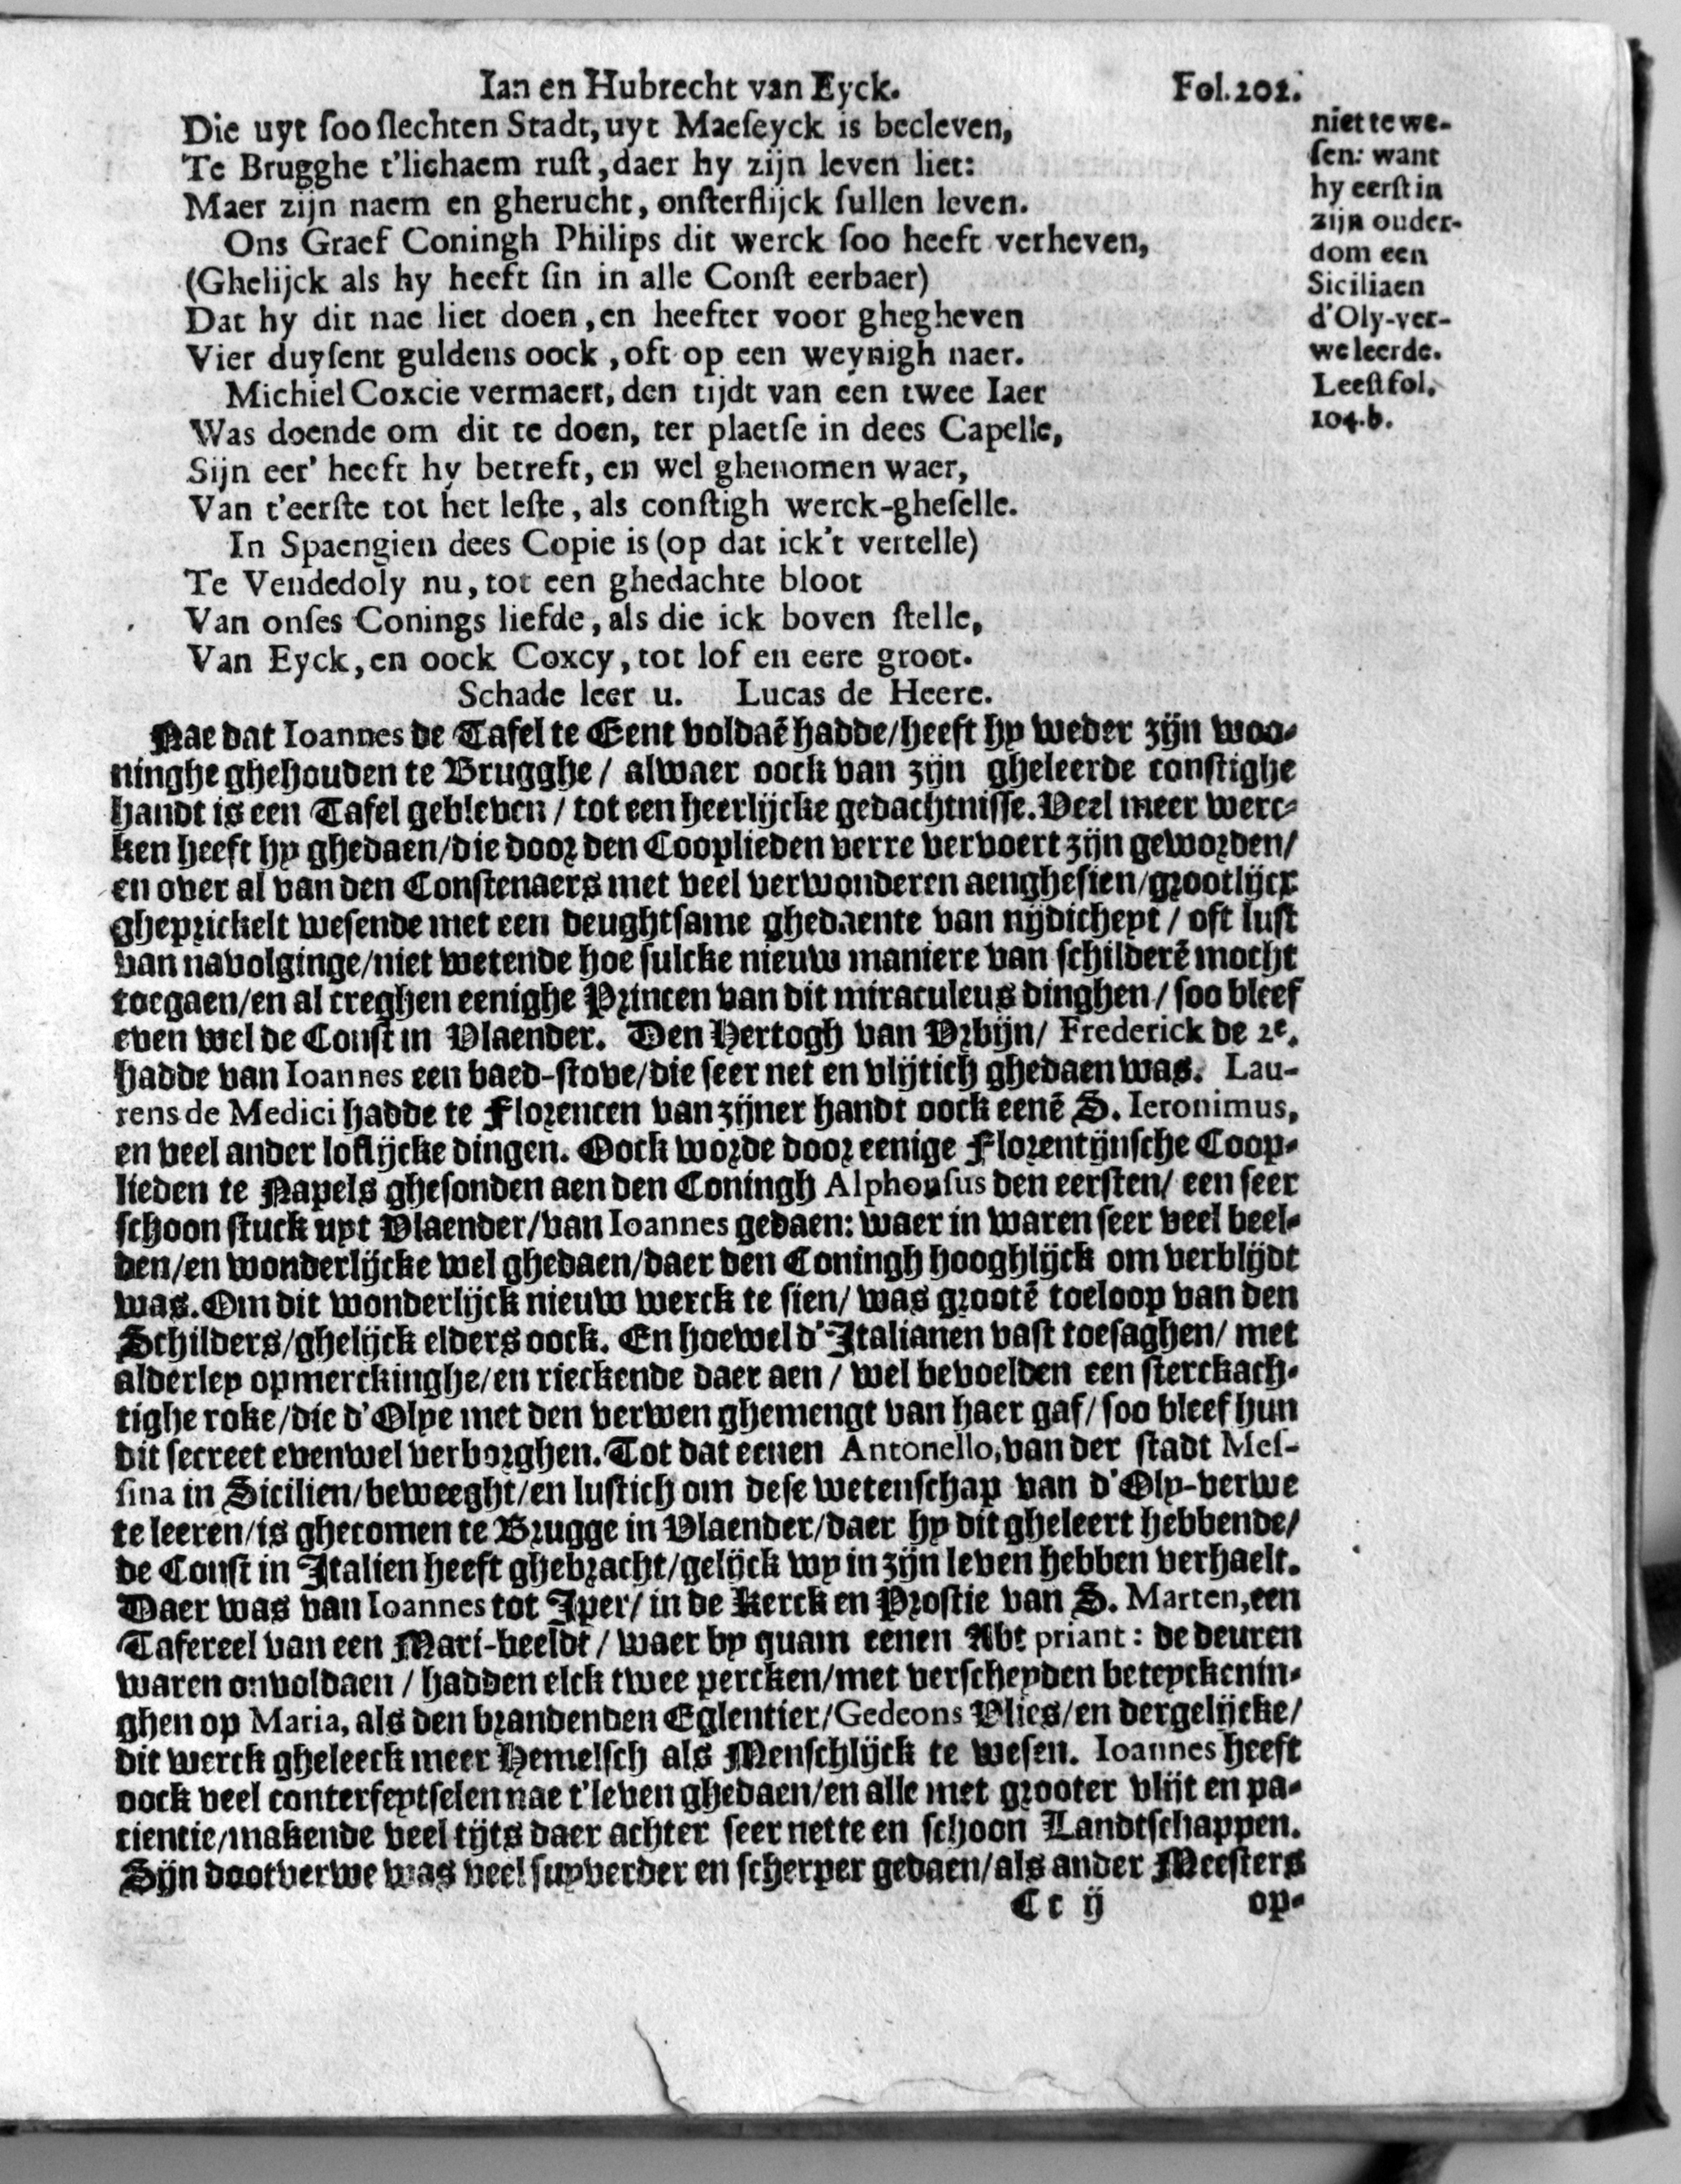 Ian en Hubrecht van Eyck. Fol. 201.
Die uyt soo slechten Stadt, uyt Maeseyck is becleven,
Te Brugghe t'lichaem rust, daer hy zijn leven liet:
Maer zijn naem en gherucht, onsterflijck sullen leven.
Ons Graef Coningh Philips dit werck soo heeft verheven,
(Ghelijck als hy heeft sin in alle Const eerbaer)
Dat hy dit nae liet doen, en heefter voor ghegheven
Vier duysent guldens oock, oft op een weynigh naer.
Michiel Coxcie vermaert, den tijdt van een twee Iaer
Was doende om dit te doen, ter plaetse in dees Capelle,
Sijn eer' heeft hy betreft, en wel ghenomen waer,
Van t'eerste tot het leste, als constigh werck-gheselle.
In Spaengien dees Copie is (op dat ick't vertelle)
Te Vendedoly nu, tot een ghedachte bloot
Van onses Conings liefde, als die ick boven stelle,
Van Eyck, en oock Coxcy, tot lof en eere groot.
Schade leer u. Lucas de Heere.
niet te we-
sen: want
hy eerst in
zijn ouder-
dom een
Siciliaen
d'Oly-ver-
we leerde.
Leest fol.
104.b.
Nae dat Ioannes de Tafel te Gent voldaẽ hadde/heeft hy weder zijn woo-
ninghe ghehouden te Brugghe / alwaer oock van zijn gheleerde constighe
handt is een Tafel gebleven / tot een heerlijcke gedachtnisse. Veel meer werc-
ken heeft hy ghedaen/die door den Cooplieden verre vervoert zijn geworden/
en over al van den Constenaers met veel verwonderen aenghesien/grootlijcx
gheprickelt wesende met een deughtsame ghedaente van nijdicheyt / oft lust
van navolginge/niet wetende hoe sulcke nieuw maniere van schilderẽ mocht
toegaen/en al creghen eenighe Princen van dit miraculeus dinghen / soo bleef
even wel de Const in Vlaender. Den Hertogh van Vrbijn/ Frederick de 2e.
hadde van Ioannes een baed-stove/die seer net en vlijtich ghedaen was. Lau-
rens de Medici hadde te Florencen van zijner handt oock eenẽ S. Ieronimus,
en veel ander loflijcke dingen. Oock worde door eenige Florentijnsche Coop-
lieden te Napels ghesonden aen den Coningh Alphonsus den eersten/ een seer
schoon stuck uyt Vlaender/van Ioannes gedaen: waer in waren seer veel beel-
den/en wonderlijcke wel ghedaen/daer den Coningh hooghlijck om verblijdt
was. Om dit wonderlijck nieuw werck te sien/ was grootẽ toeloop van den
Schilders/ghelijck elders oock. En hoewel d'Italianen vast toesaghen/ met
alderley opmerckinghe/en rieckende daer aen / wel bevoelden een sterckach-
tighe roke/die d'Olye met den verwen ghemengt van haer gaf/ soo bleef hun
dit secreet evenwel verborghen. Tot dat eenen Antonello, van der stadt Mes-
sina in Sicilien/beweeght/en lustich om dese wetenschap van d'Oly-verwe
te leeren/is ghecomen te Brugge in Vlaender/daer hy dit gheleert hebbende/
de Const in Italien heeft ghebracht/gelijck wy in zijn leven hebben verhaelt.
Daer was van Ioannes tot Iper/ in de Kerck en Prostie van S. Marten, een
Tafereel van een Mari-beeldt / waer by quam eenen Abt priant: de deuren
waren onvoldaen / hadden elck twee percken/met verscheyden beteyckenin-
ghen op Maria, als den brandenden Eglentier/Gedeons Vlies/en dergelijcke/
dit werck gheleeck meer Hemelsch als Menschlijck te wesen. Ioannes heeft
oock veel conterfeytselen nae t'leven ghedaen/en alle met grooter vlijt en pa-
cientie/makende veel tijts daer achter seer nette en schoon Landtschappen.
Sijn dootverwe was veel suyverder en scherper gedaen/als ander Meesters
Cc ij op-